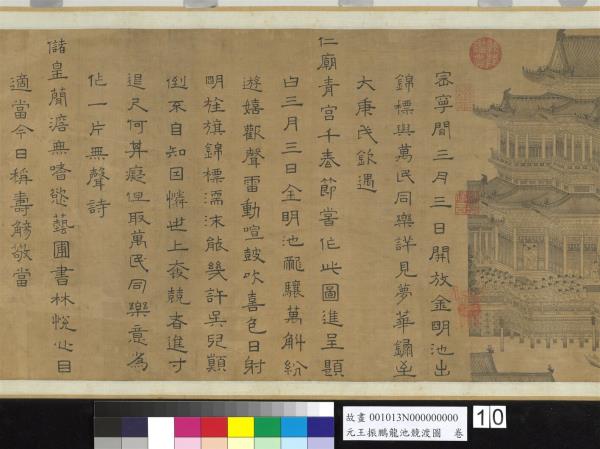 崇寧間三月三日開放金明池出
錦標與萬民同樂詳見夢華錄至
大庚戌欽遇
仁廟青宮千春節嘗作此圖進呈題
曰三月三日金明池龍驤萬斛紛
遊嬉歡聲雷動喧鼓吹喜色日射
明旌旗錦標濡沫能幾許吳兒顛
倒不自知因憐世上奔競者進寸
退尺何其癡但取萬民同樂意為
作一片無聲詩
儲皇簡澹無嗜慾藝圃書林悅心目
適當今日稱壽觴敬當
故畫 001013N000000000
元王振鵬龍池競渡圖 卷
10